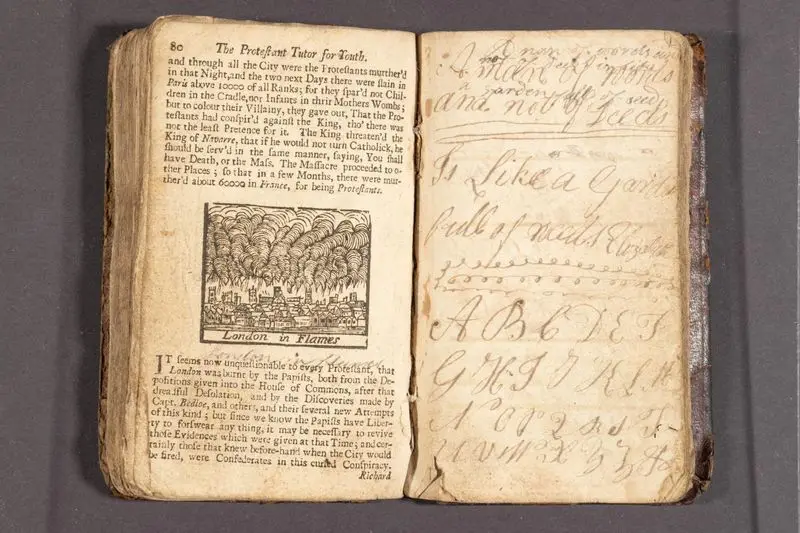 80 The Proteſtant Tutor for Youth.
and through all the City were the Proteſtants murther'd
in that Night, and the two next Days there were ſlain in
Paris above 10000 of all Ranks; for they ſpar'd not Chil-
dren in the Cradle, nor Infants in thrir Mothers Wombs;
but to colour their Villainy, they gave out, That the Pro-
teſtants had conſpir'd againſt the King, tho' there was
not the leaſt Pretence for it. The King threaten'd the
King of Navarre, that if he would not turn Catholick, he
ſhould be ſerv'd in the ſame manner, ſaying, You ſhall
have Death, or the Maſs. The Maſſacre proceeded to o-
ther Places; ſo that in a few Months, there were mur-
ther'd about 60000 in France, for being Proteſtants.
London in Flames
London in flames
IT ſeems now unqueſtionable to every Proteſtant, that
London was burnt by the Papiſts, both from the De-
poſitions given into the Houſe of Commons, after that
dreadful Deſolation, and by the Diſcoveries made by
Capt. Bedloe, and others, and their ſeveral new Attempts
of this kind; but ſince we know the Papiſts have Liber-
ty to forſwear any thing, it may be neceſſary to revive
thoſe Evidences which were given at that Time; and cer-
tainly thoſe that knew before-hand when the City would
be fired, were Confederates in this curſed Conſpiracy.
Richard
A man of words
A man of words
and not of Deeds
garden full seed
Is Like a Garden
full of weeds
A B C D E F
G H I J K L M
N O P Q R S T
U V W X Y Z &